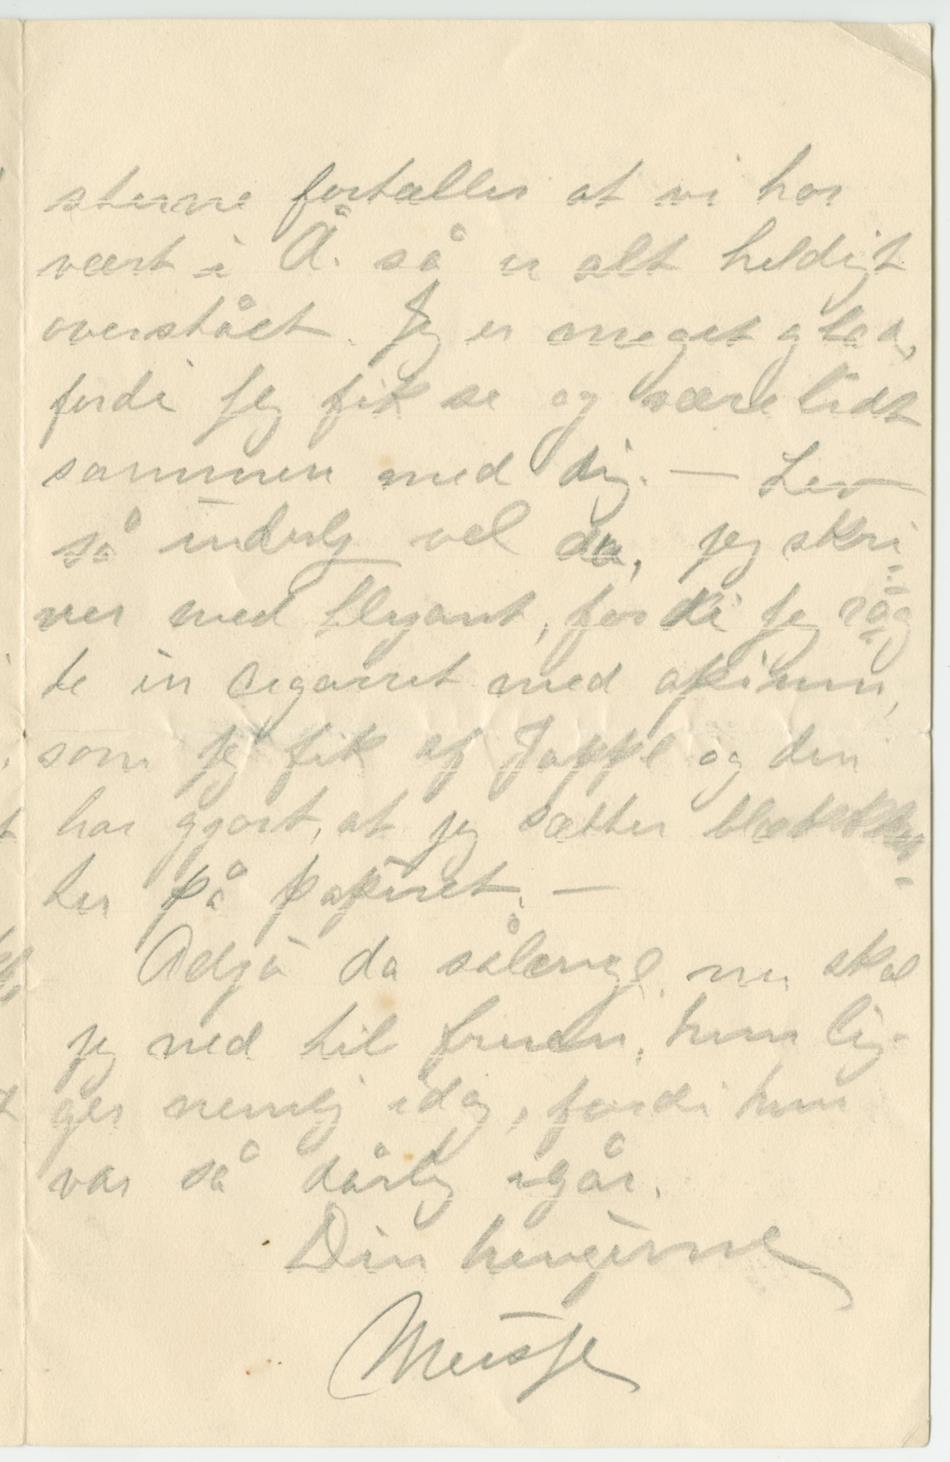 sterne fortæller at vi har
vært i Å. så er alt heldigt
overstået. Jeg er meget glad,
fordi jeg fik se og være lidt
sammen med dig. — Lev
så inderlig vel da, jeg skri
ver med blyant, fordi jeg røg
te en cigarret med opium,
som jeg fik af Jappe og den
har gjort, at jeg sætter
ker på papiret. —
Adjø da sålenge, nu skal
jeg ned til fruen, hun lig-
ger nemlig idag, fordi hun
var så dårlig igår.
Din hengivne